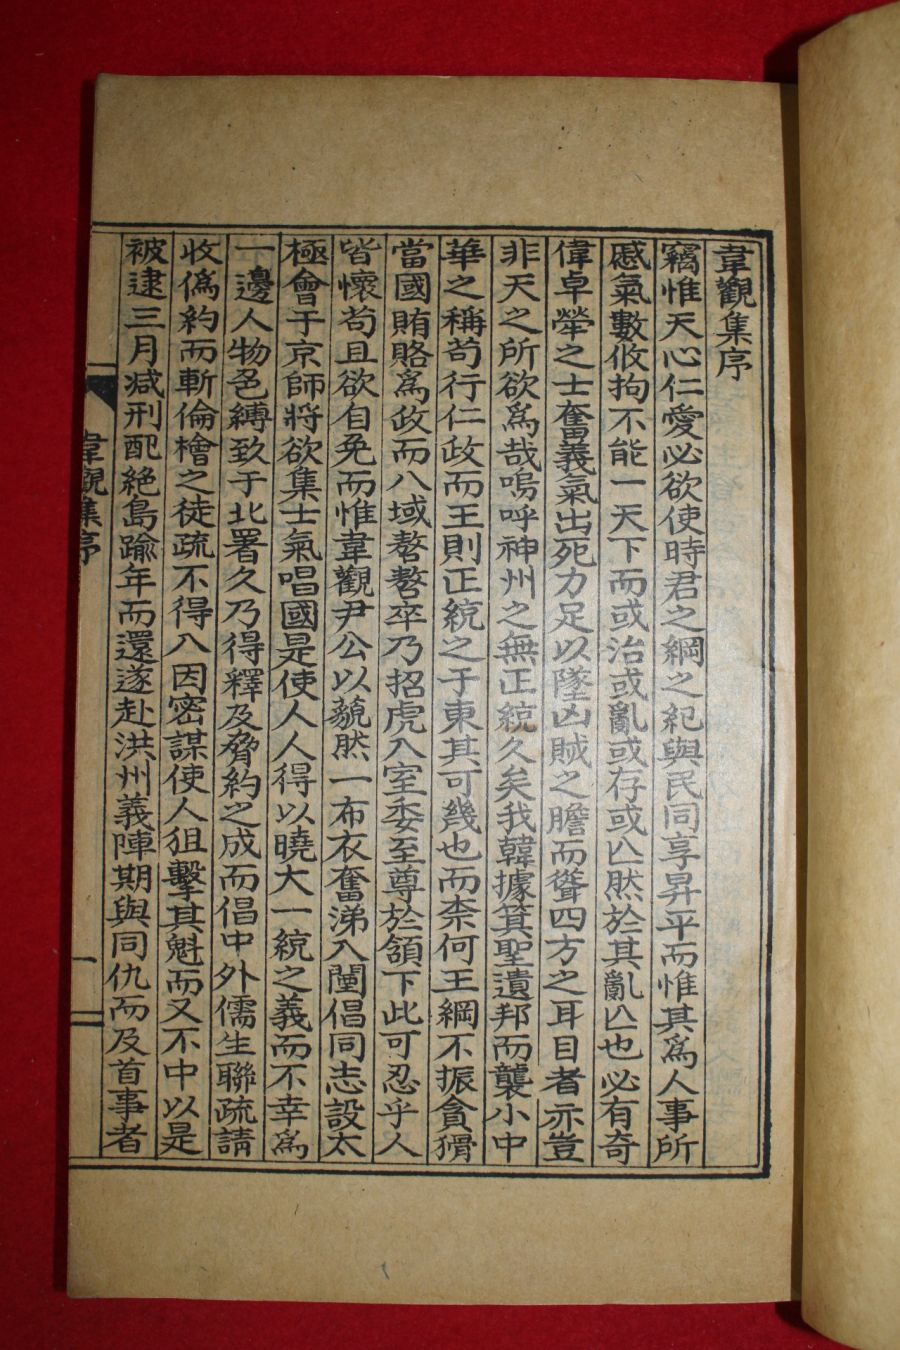 韋觀集序
竊惟天心仁愛必欲使時君之綱之紀與民同享昇平而惟其爲人事所
慼氣數攸拘不能一天下而或治或亂或存或亾然於其亂亾也必有奇
偉卓犖之士奮義氣出死力足以墜凶賊之膽而聳四方之耳目者亦豈
非天之所欲爲哉嗚呼神州之無正統久矣我韓據箕聖遺邦而襲小中
華之稱苟行仁政而王則正統之于東其可幾也而柰何王綱不振貪猾
當國賄賂爲政而八域嗸嗸卒乃招虎入室委至尊於頷下此可忍乎人
皆懷苟且欲自免而惟韋觀尹公以藐然一布衣奮涕入闉倡同志設太
極會于京師將欲集士氣唱國是使人人得以曉大一統之義而不幸爲
一邊人物色縛致于北署久乃得釋及脅約之成而倡中外儒生聯疏請
收僞約而斬倫檜之徒疏不得入因密謀使人狙擊其魁而又不中以是
被逮三月减刑配絕島踰年而還遂赴洪州義陣期與同仇而及首事者
韋觀集序
一